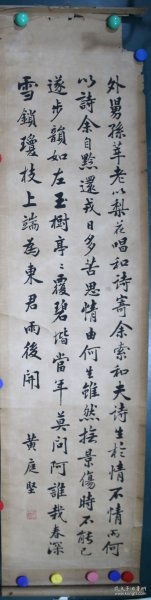 外舅孫莘老以梨花唱和詩寄余索和夫詩生於情不情而何
以詩余自黔還戎日多苦思情由何生雖然撫景傷時不能已
遂步韻如左玉樹亭亭覆碧堦當年莫問阿誰栽春深
雪鎖瓊枝上端為東君雨後開
黃庭堅